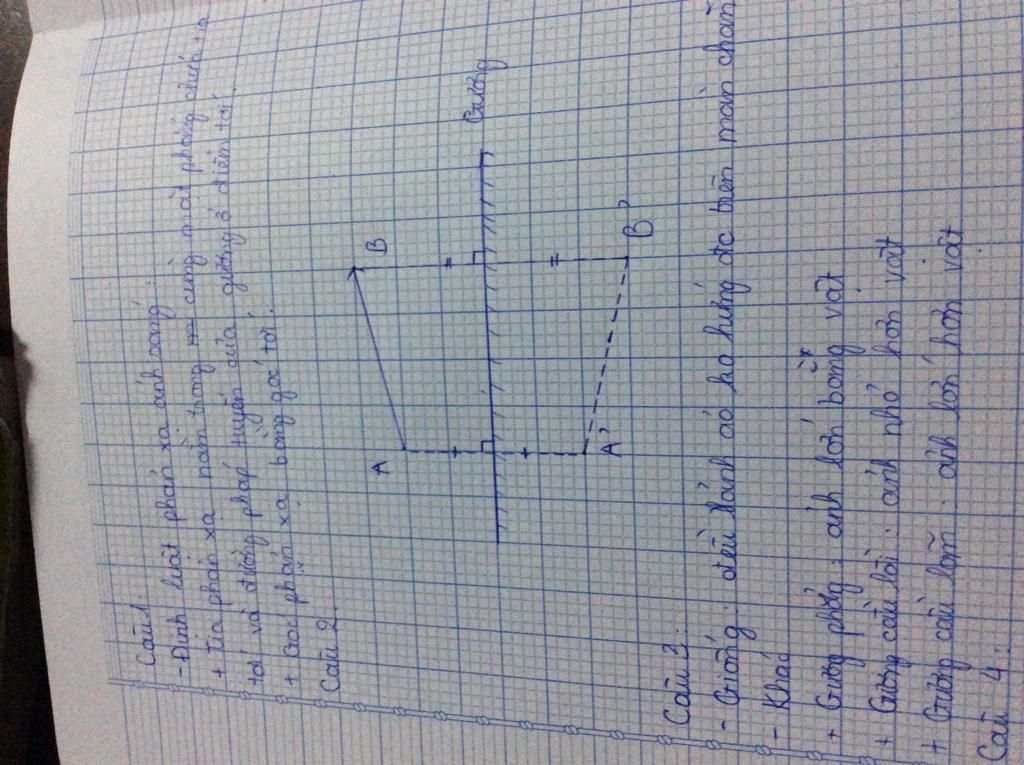 Câu 1:
- Định luật phản xạ ánh sáng:
+ Tia phản xạ nằm trong cùng mặt phẳng chứa tia
tới và đường pháp tuyến của gương ở điểm tới.
+ Góc phản xạ bằng góc tới.
Câu 2
A
B
Gương
A'
B'
Câu 3:
- Giống: đều là ảnh ảo ko hứng đc trên màn chắn
- Khác
+ Gương phẳng: ảnh lớn bằng vật
+ Gương cầu lồi: ảnh nhỏ hơn vật
+ Gương cầu lõm: ảnh lớn hơn vật
Câu 4: